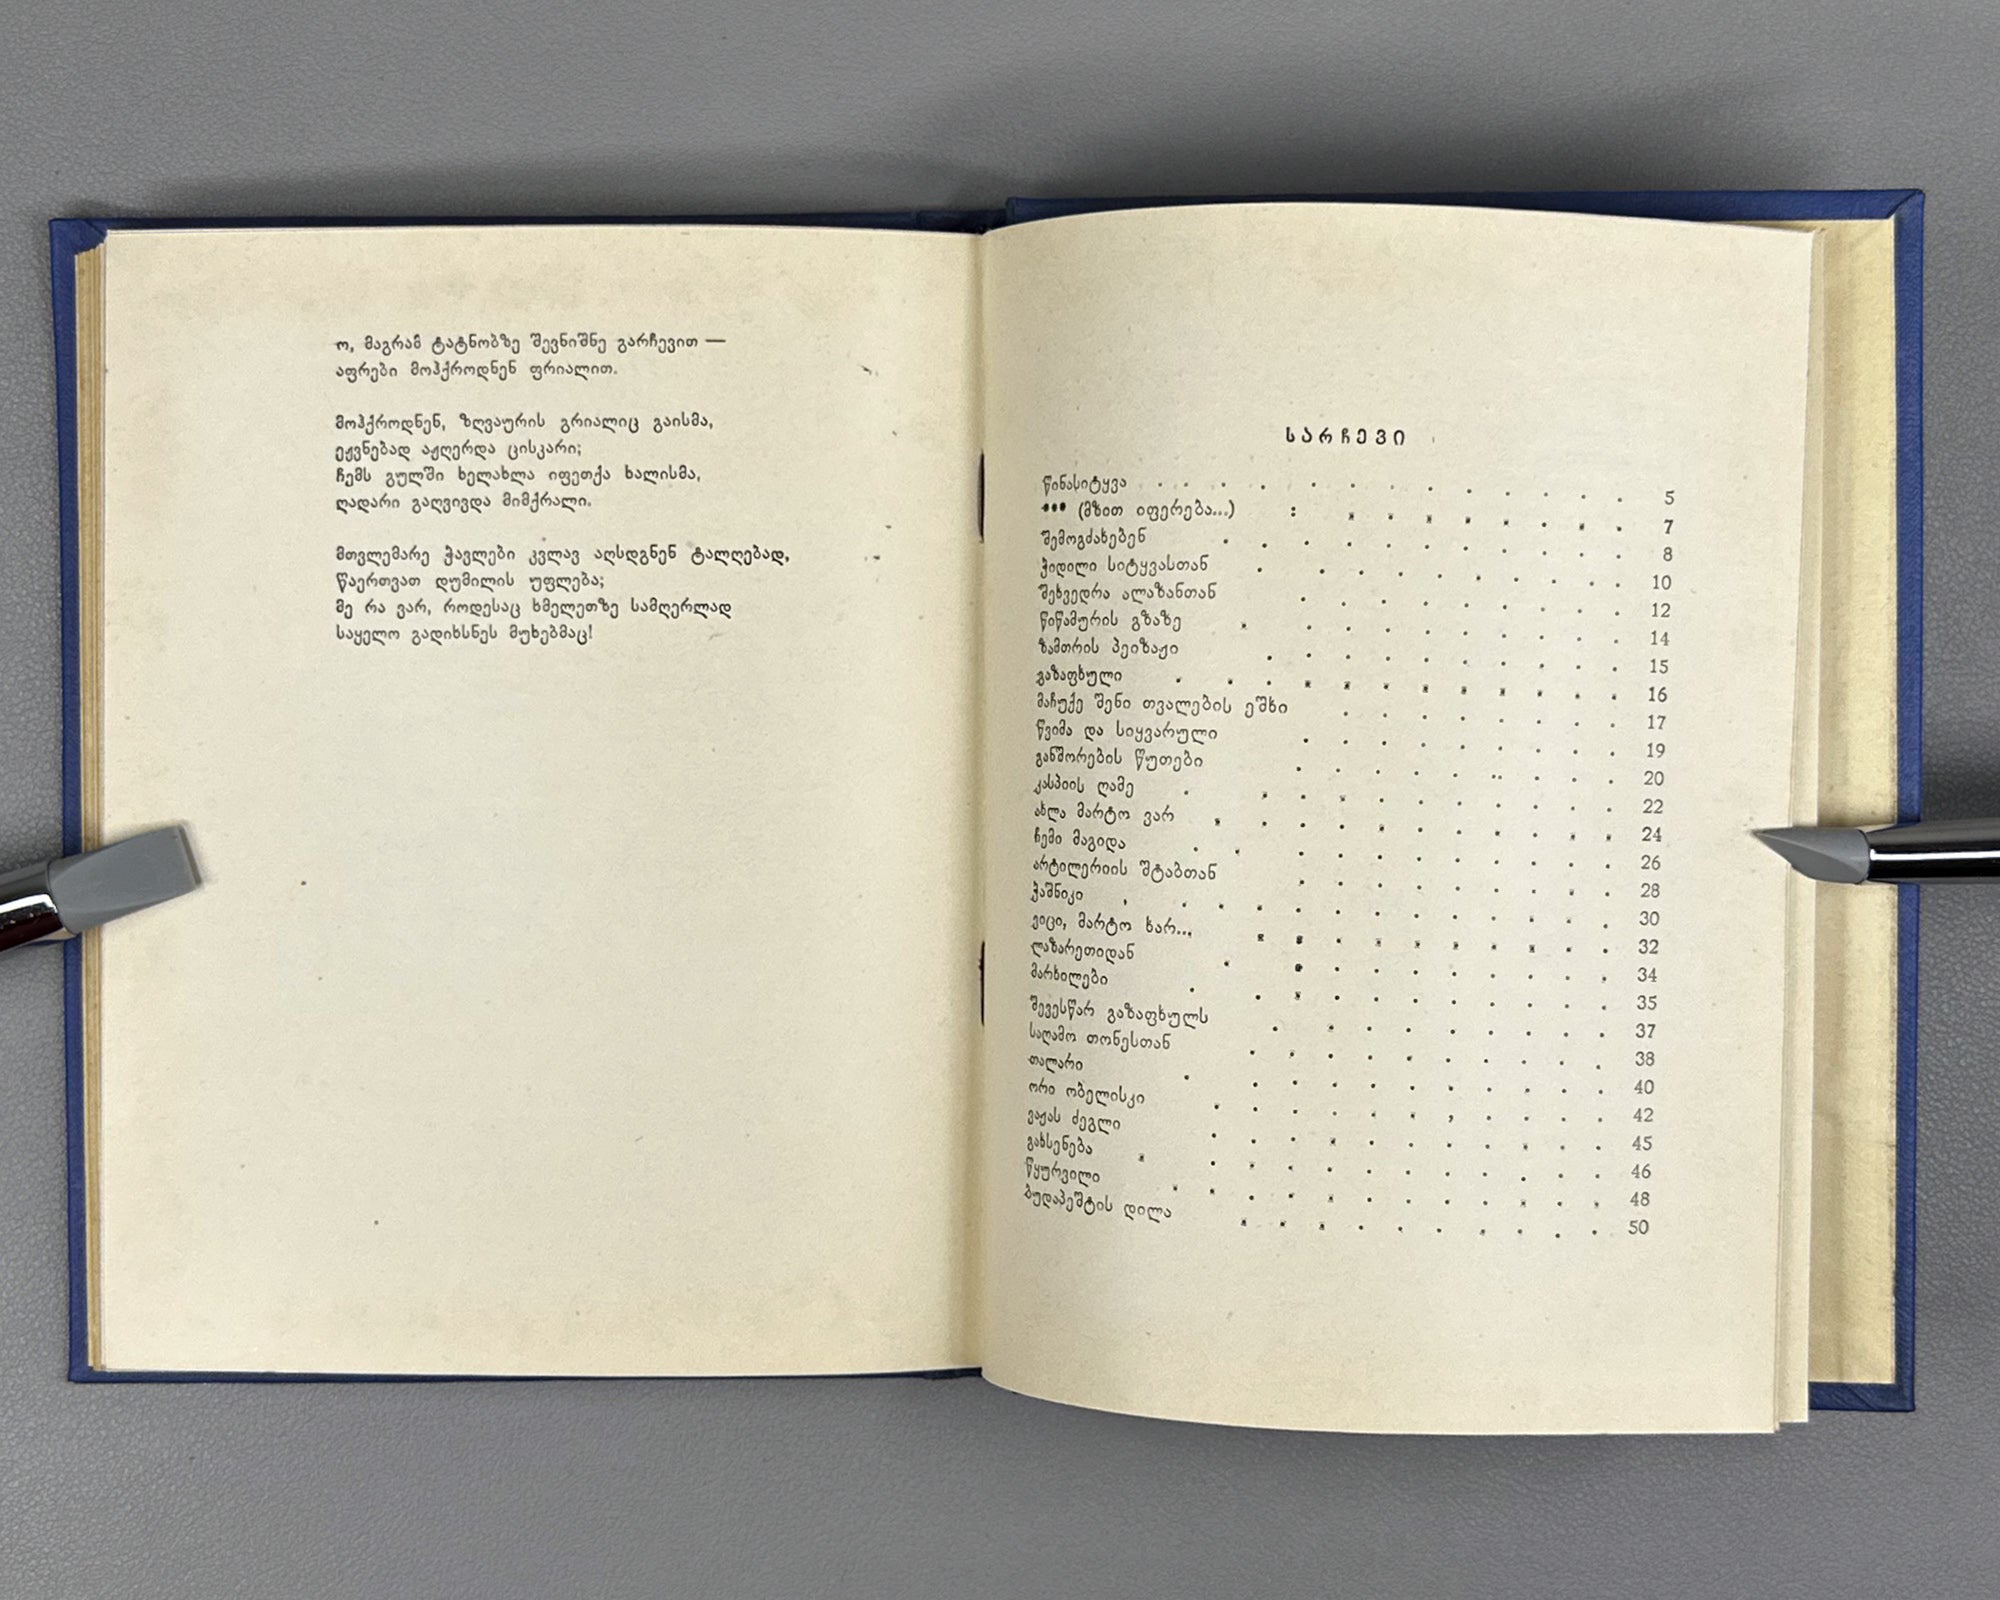 ო, მაგრამ ტატნობზე შევნიშნე გარჩევით —
აფრები მოჰქროდნენ ფრიალით.
მოჰქროდნენ, ზღვაურის გრიალიც გაისმა,
ეჟვნებად აჟღერდა ცისკარი;
ჩემს გულში ხელახლა იფეთქა ხალისმა,
ღადარი გაღვივდა მიმქრალი.
მთვლემარე ჭავლები კვლავ აღსდგნენ ტალღებად,
წაერთვათ დუმილის უფლება;
მე რა ვარ, როდესაც ხმელეთზე სამღერლად
საყელო გადიხსნეს მუხებმაც!
სარჩევი
წინასიტყვა 5
*** (მზით იფერება...) 7
შემოგძახებენ 8
ჭიდილი სიტყვასთან 10
შეხვედრა ალაზანთან 12
წიწამურის გზაზე 14
ზამთრის პეიზაჟი 15
გაზაფხული 16
მაჩუქე შენი თვალების ეშხი 17
წვიმა და სიყვარული 19
განშორების წუთები 20
კასპიის ღამე 22
ახლა მარტო ვარ 24
ჩემი მაგიდა 26
არტილერიის შტაბთან 28
ჭაშნიკი 30
ვიცი, მარტო ხარ... 32
ლაზარეთიდან 34
მარხილები 35
შევესწარ გაზაფხულს 37
საღამო თონესთან 38
თალარი 40
ორი ობელისკი 42
ვაჟას ძეგლი 45
გახსენება 46
წყურვილი 48
ბუდაპეშტის დილა 50